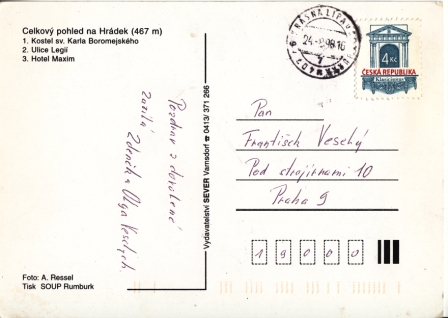 Celkový pohled na Hrádek (467 m)
1. Kostel sv. Karla Boromejského
2. Ulice Legií
3. Hotel Maxim
KRÁSNÁ LÍPA
24.
98.16
4 Kč
ČESKÁ REPUBLIKA
Pozdrav z dovolené
zasílá Zdeněk a Olga
Vydavatelství SEVER Varnsdorf ☎ 0413/ 371 266
Pan
František Veselý
Pod strojírnami 10
Praha 9
19000
Foto: A. Ressel
Tisk SOUP Rumburk